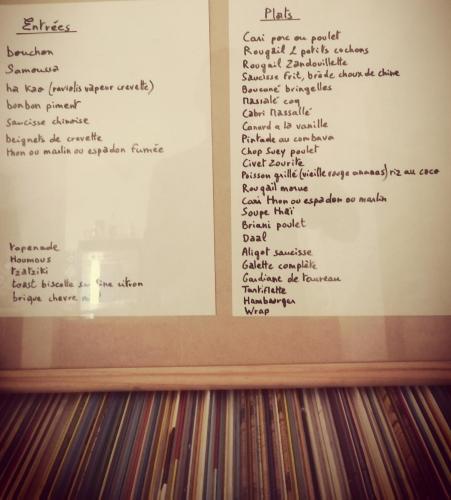 Entrées
bouchon
Samoussa
ha kao (raviolis vapeur crevette)
bonbon piment
Saucisse chinoise
beignets de crevette
thon ou marlin ou espadon fumée
tapenade
Houmous
tzatziki
toast biscotte citron
brique chevre
Plats
Cari porc ou poulet
Rougail 2 petits cochons
Rougail Zandouillette
Saucisse frit, brède choux de chine
Boucané bringelles
Massalé coq
Cabri Massallé
Canard a la vanille
Pintade au combava
Chop Suey poulet
Civet Zourite
Poisson grillé (vieille rouge ananas) riz au coco
Rougail morue
Cari thon ou espadon ou marlin
Soupe Thaï
Briani poulet
Daal
Aligot saucisse
Galette complète
Gardiane de taureau
Tartiflette
Hamburger
Wrap